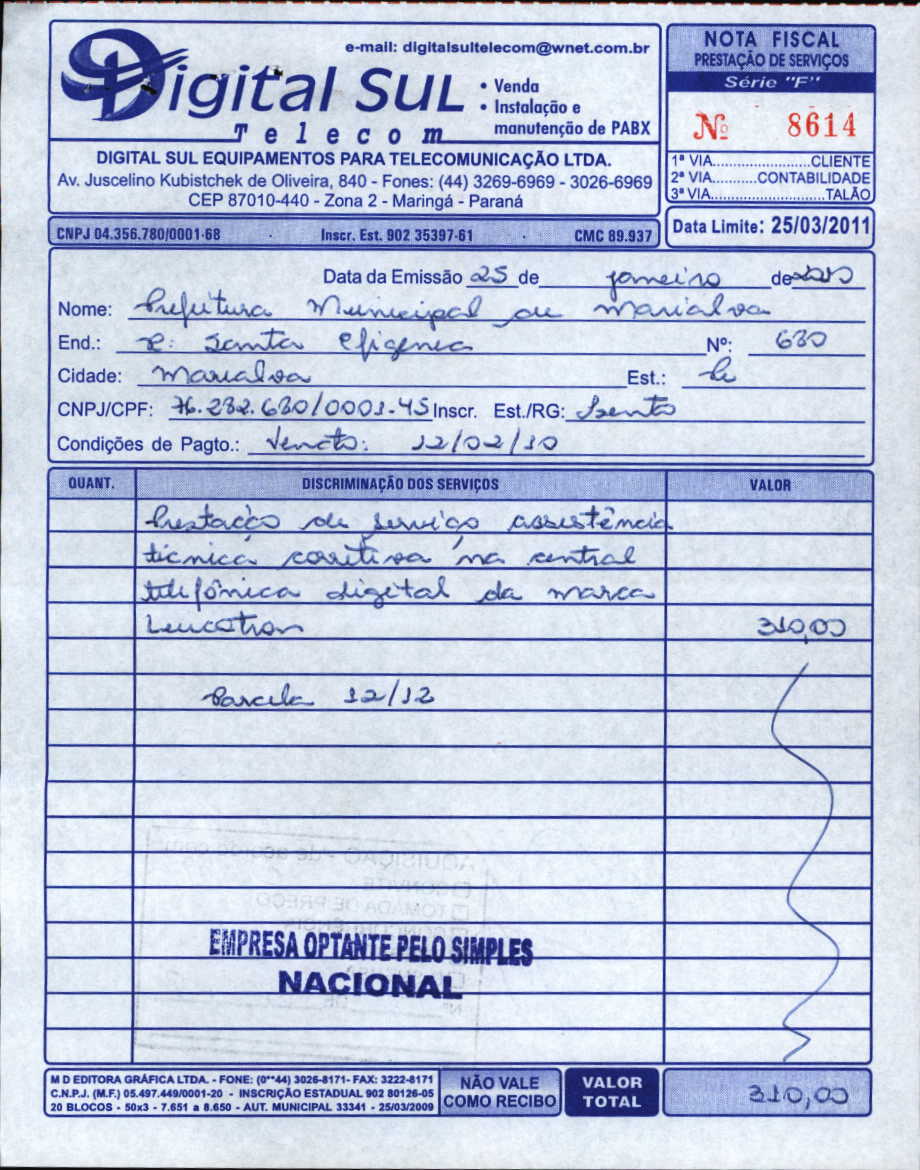 e-mail: digitalsultelecom@wnet.com.br
Digital Sul
Telecom
• Venda
• Instalação e
manutenção de PABX
DIGITAL SUL EQUIPAMENTOS PARA TELECOMUNICAÇÃO LTDA.
Av. Juscelino Kubistchek de Oliveira, 840 - Fones: (44) 3269-6969 - 3026-6969
CEP 87010-440 - Zona 2 - Maringá - Paraná
NOTA FISCAL
PRESTAÇÃO DE SERVIÇOS
Série "F"
Nº 8614
1ª VIA.......................CLIENTE
2ª VIA...........CONTABILIDADE
3ª VIA..........................TALÃO
CNPJ 04.356.780/0001-68 Inscr. Est. 902 35397-61 CMC 89.937
Data Limite: 25/03/2011
Data da Emissão 25 de janeiro de 2010
Nome: Prefeitura Municipal de Marialva
End.: R: Santa Efigenia Nº: 680
Cidade: Marialva Est.: Pr
CNPJ/CPF: 76.282.680/0001-45 Inscr. Est./RG: Isento
Condições de Pagto.: Vencto: 12/02/10
QUANT. DISCRIMINAÇÃO DOS SERVIÇOS VALOR
Prestação de serviço assistência
técnica corretiva na central
telefônica digital da marca
Leucotron 310,00
Parcela 12/12
AQUISIÇÃO de acordo com
CONVITE
TOMADA DE PREÇO
EMPRESA OPTANTE PELO SIMPLES
NACIONAL
M D EDITORA GRÁFICA LTDA. - FONE: (0**44) 3026-8171- FAX: 3222-8171
C.N.P.J. (M.F.) 05.497.449/0001-20 - INSCRIÇÃO ESTADUAL 902 80126-05
20 BLOCOS - 50x3 - 7.651 a 8.650 - AUT. MUNICIPAL 33341 - 25/03/2009
NÃO VALE
COMO RECIBO
VALOR
TOTAL
310,00